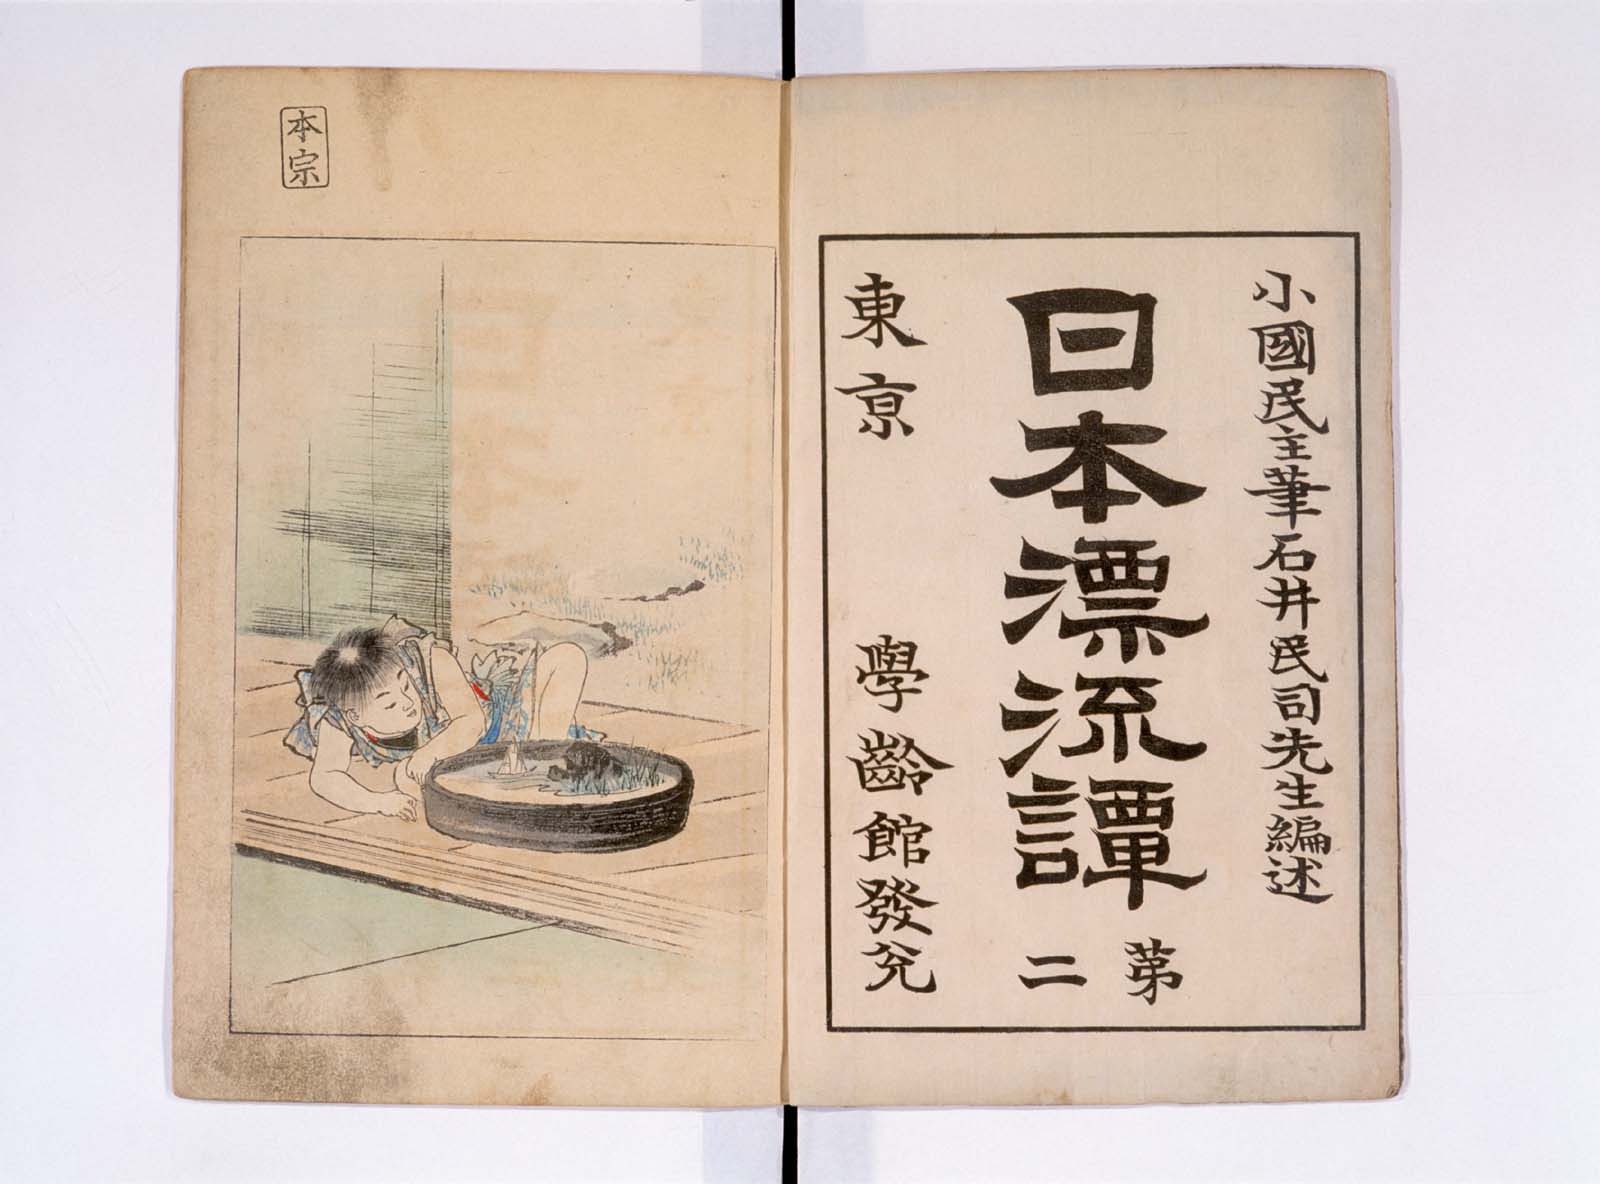 小國民主筆石井民司先生編述
日本漂流譚
第二
東京
學齡館發兌
本宗